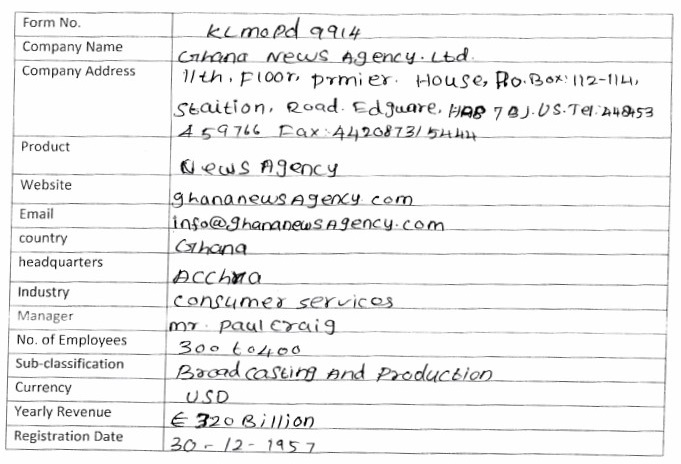 Form No. KLmopd 9914
Company Name Ghana News Agency. Ltd.
Company Address 11th, Floor, prmier. House, Po.Box: 112-114,
Staition, Road. Edguare, HA8 7BJ. US. Tel: 448453
459766 Fax: 442087315444
Product News Agency
Website ghananewsAgency com
Email info@ghananewsAgency.com
country Ghana
headquarters Acchra
Industry consumer services
Manager mr. paul craig
No. of Employees 300 to 400
Sub-classification Broad casting And Production
Currency USD
Yearly Revenue € 320 Billion
Registration Date 30-12-1957